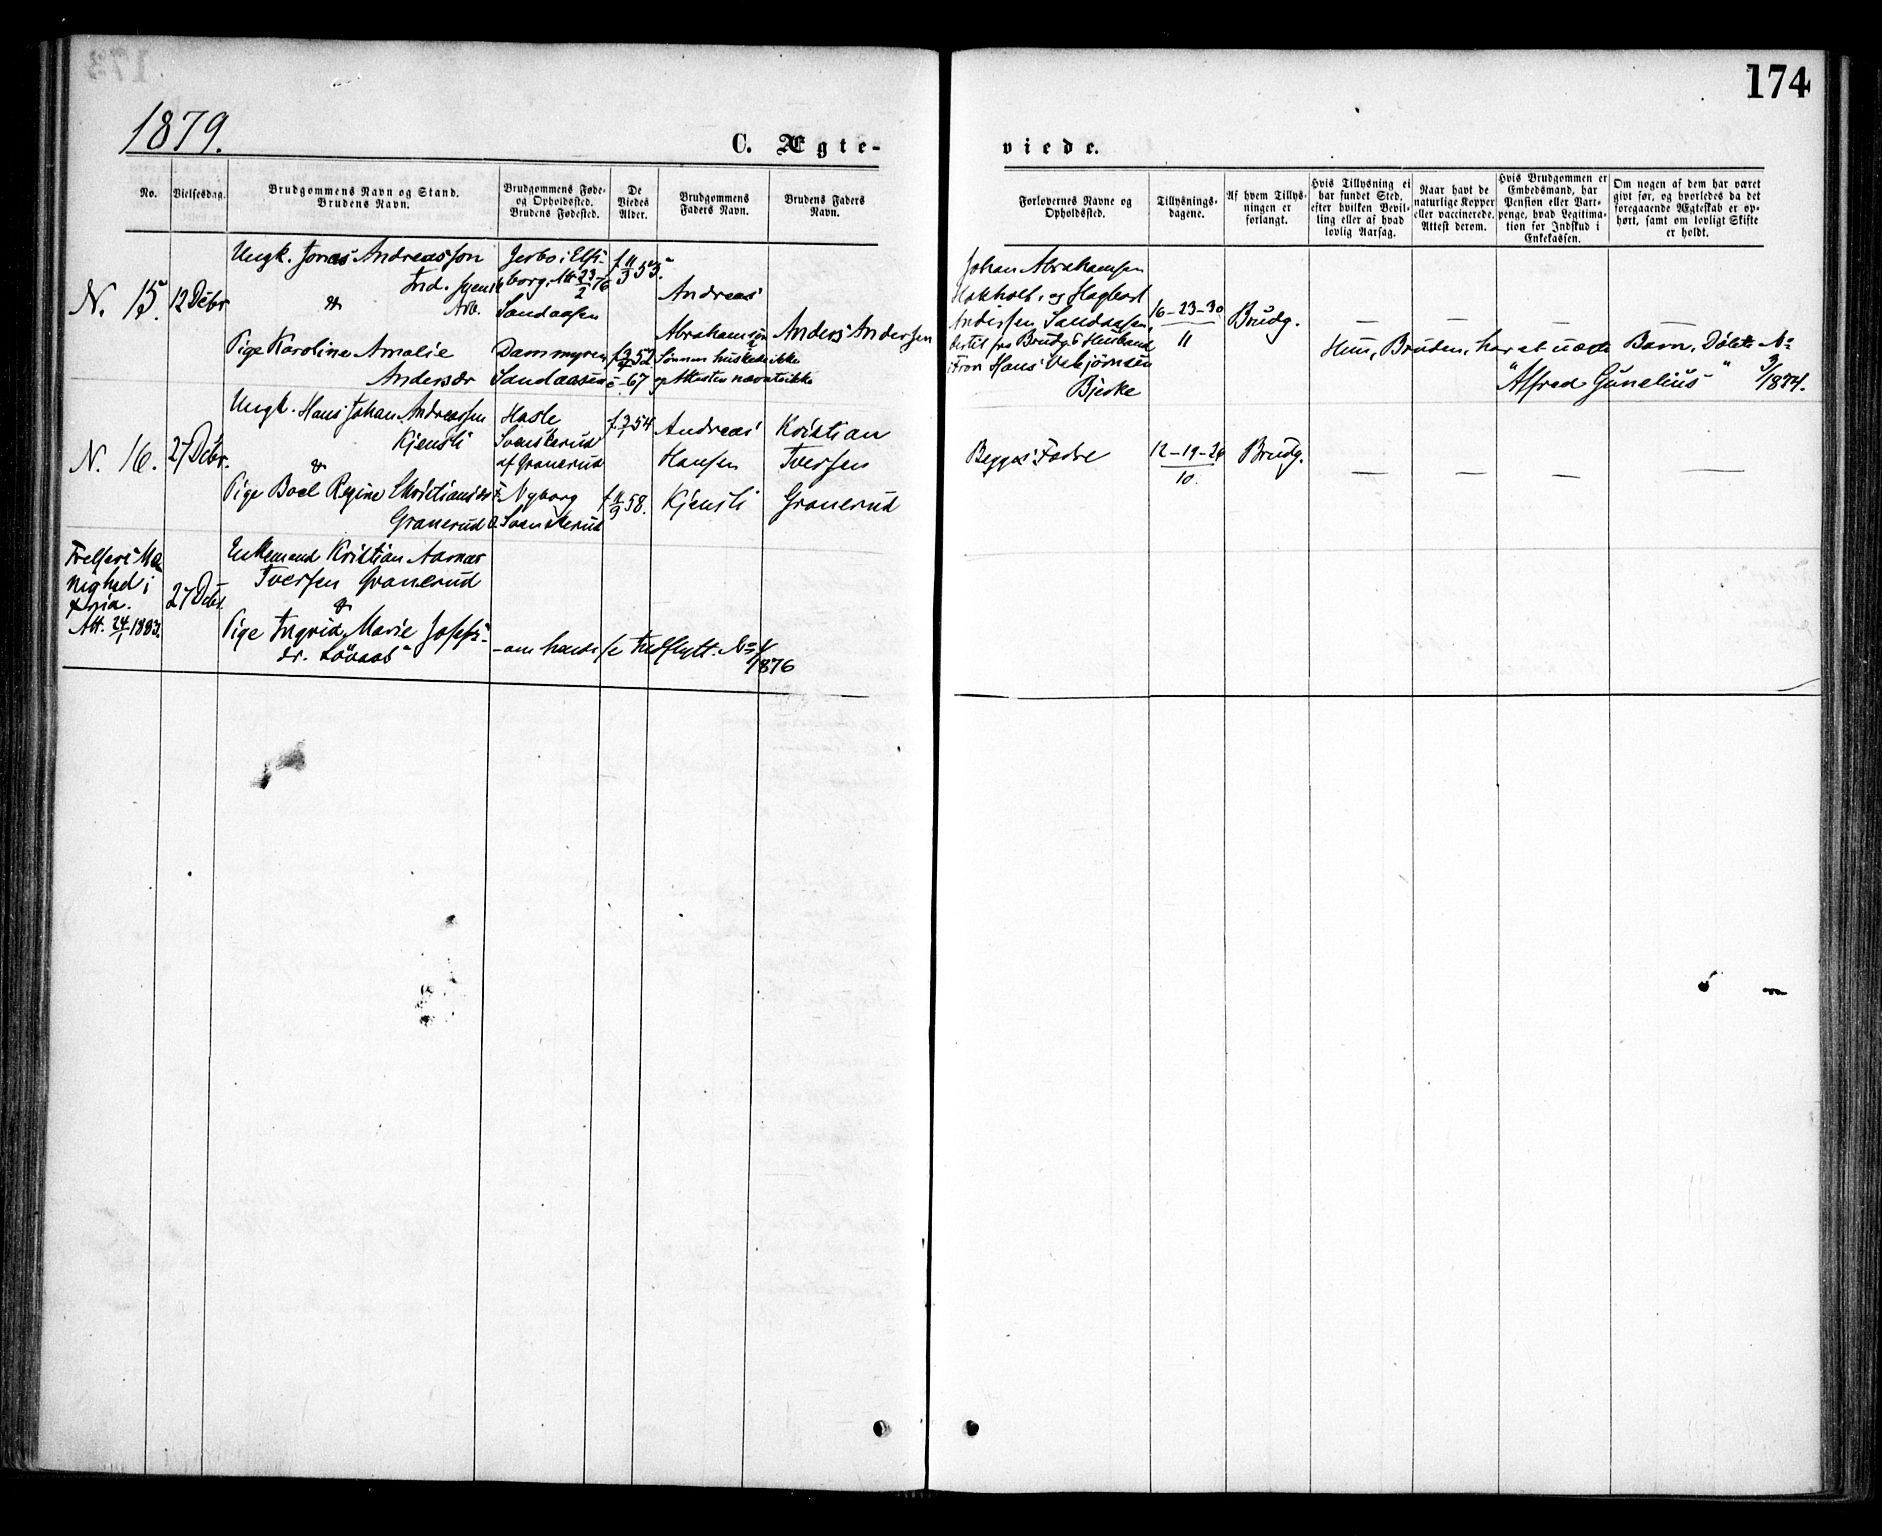 174
1879.
C. Ægte-
viede.
No.
Vielsesdag.
Brudgommens Navn og Stand.
Brudens Navn.
Brudgommens Føde-
og Opholdssted.
Brudens Fødested.
De
Viedes
Alder.
Brudgommens
Faders Navn.
Brudens Faders
Navn.
Forlovernes Navne og
Opholdssted.
Tillysnings-
dagene.
Af hvem Tillys-
ningen er
forlangt.
Hvis Tillysning ei
har fundet Sted,
efter hvilken Bevil-
ling eller af hvad
lovlig Aarsag.
Naar havt de
naturlige Kopper
eller vaccinerede.
Attest derom.
Hvis Brudgommen er
Embedsmand, har
Pension eller Vart-
penge, hvad Legitima-
tion for Indskud i
Enkekassen.
Om nogen af dem har været
givt før, og hvorledes da det
foregaaende Ægteskab er op-
hørt, samt om lovligt Skifte
er holdt.
N. 15. 12 Debr
Ungk. Jonas Andreasson
Ind.
Arb.
&
Pige Karoline Amalie
Andersdr
Jerbo i Elfs-
borg, Att 23/2 76
Sandaasen
Dammyren
Sandaasen
f 11/3 53.
Andreas
Abrahamson
Anders Andersen
Johan Abrahamsen
Hokholt, og Hagbart
Andersen Sandaasen,
Hans Vebjørnsen
Bjerke
16-23-30
11
Brudg.
Hun, Bruden, har et uægte Barn, Døbte No
"Alfred Gunelius" 3/1874.
N. 16. 27 Debr.
Ungk. Hans Johan Andreassen
Kjensli
&
Pige Boel Regine Kristiansdr
Granerud
Hasle
Svenskerud
af Granerud
Nyborg
Svenskerud
54
f 11/9 58.
Andreas
Hansen
Kjensli
Kristian
Iversen
Granerud
Begges Fædre
12-19-26
10.
Brudg.
Frelsers Me-
nighed i
Xnia.
Att. 24/1 1883.
27 Debr
Enkemand Kristian Aarnes
Iversen Granerud
&
Pige Ingrid Marie Josefs-
dr. Løvaas
- om hende se Indflytt. No 1/1876